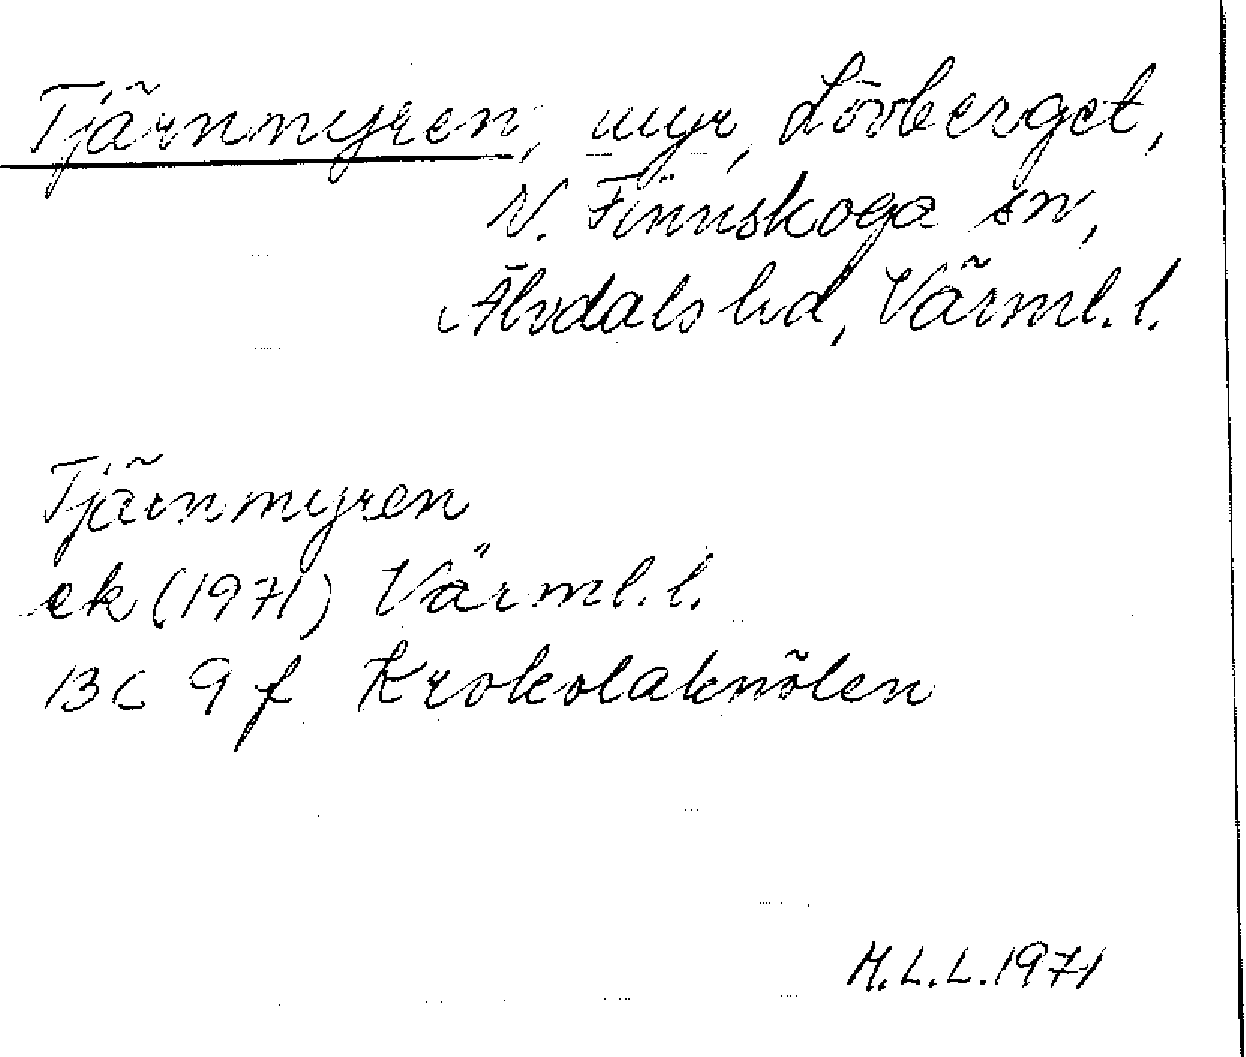 Tjärnmyren, myr, Lövberget,
N. Finnskoga sn,
Älvdals hd, Värml. l.
Tjärnmyren
ek (1971) Värml. l.
13C 9f Krokolaknölen
M.L.L. 1971